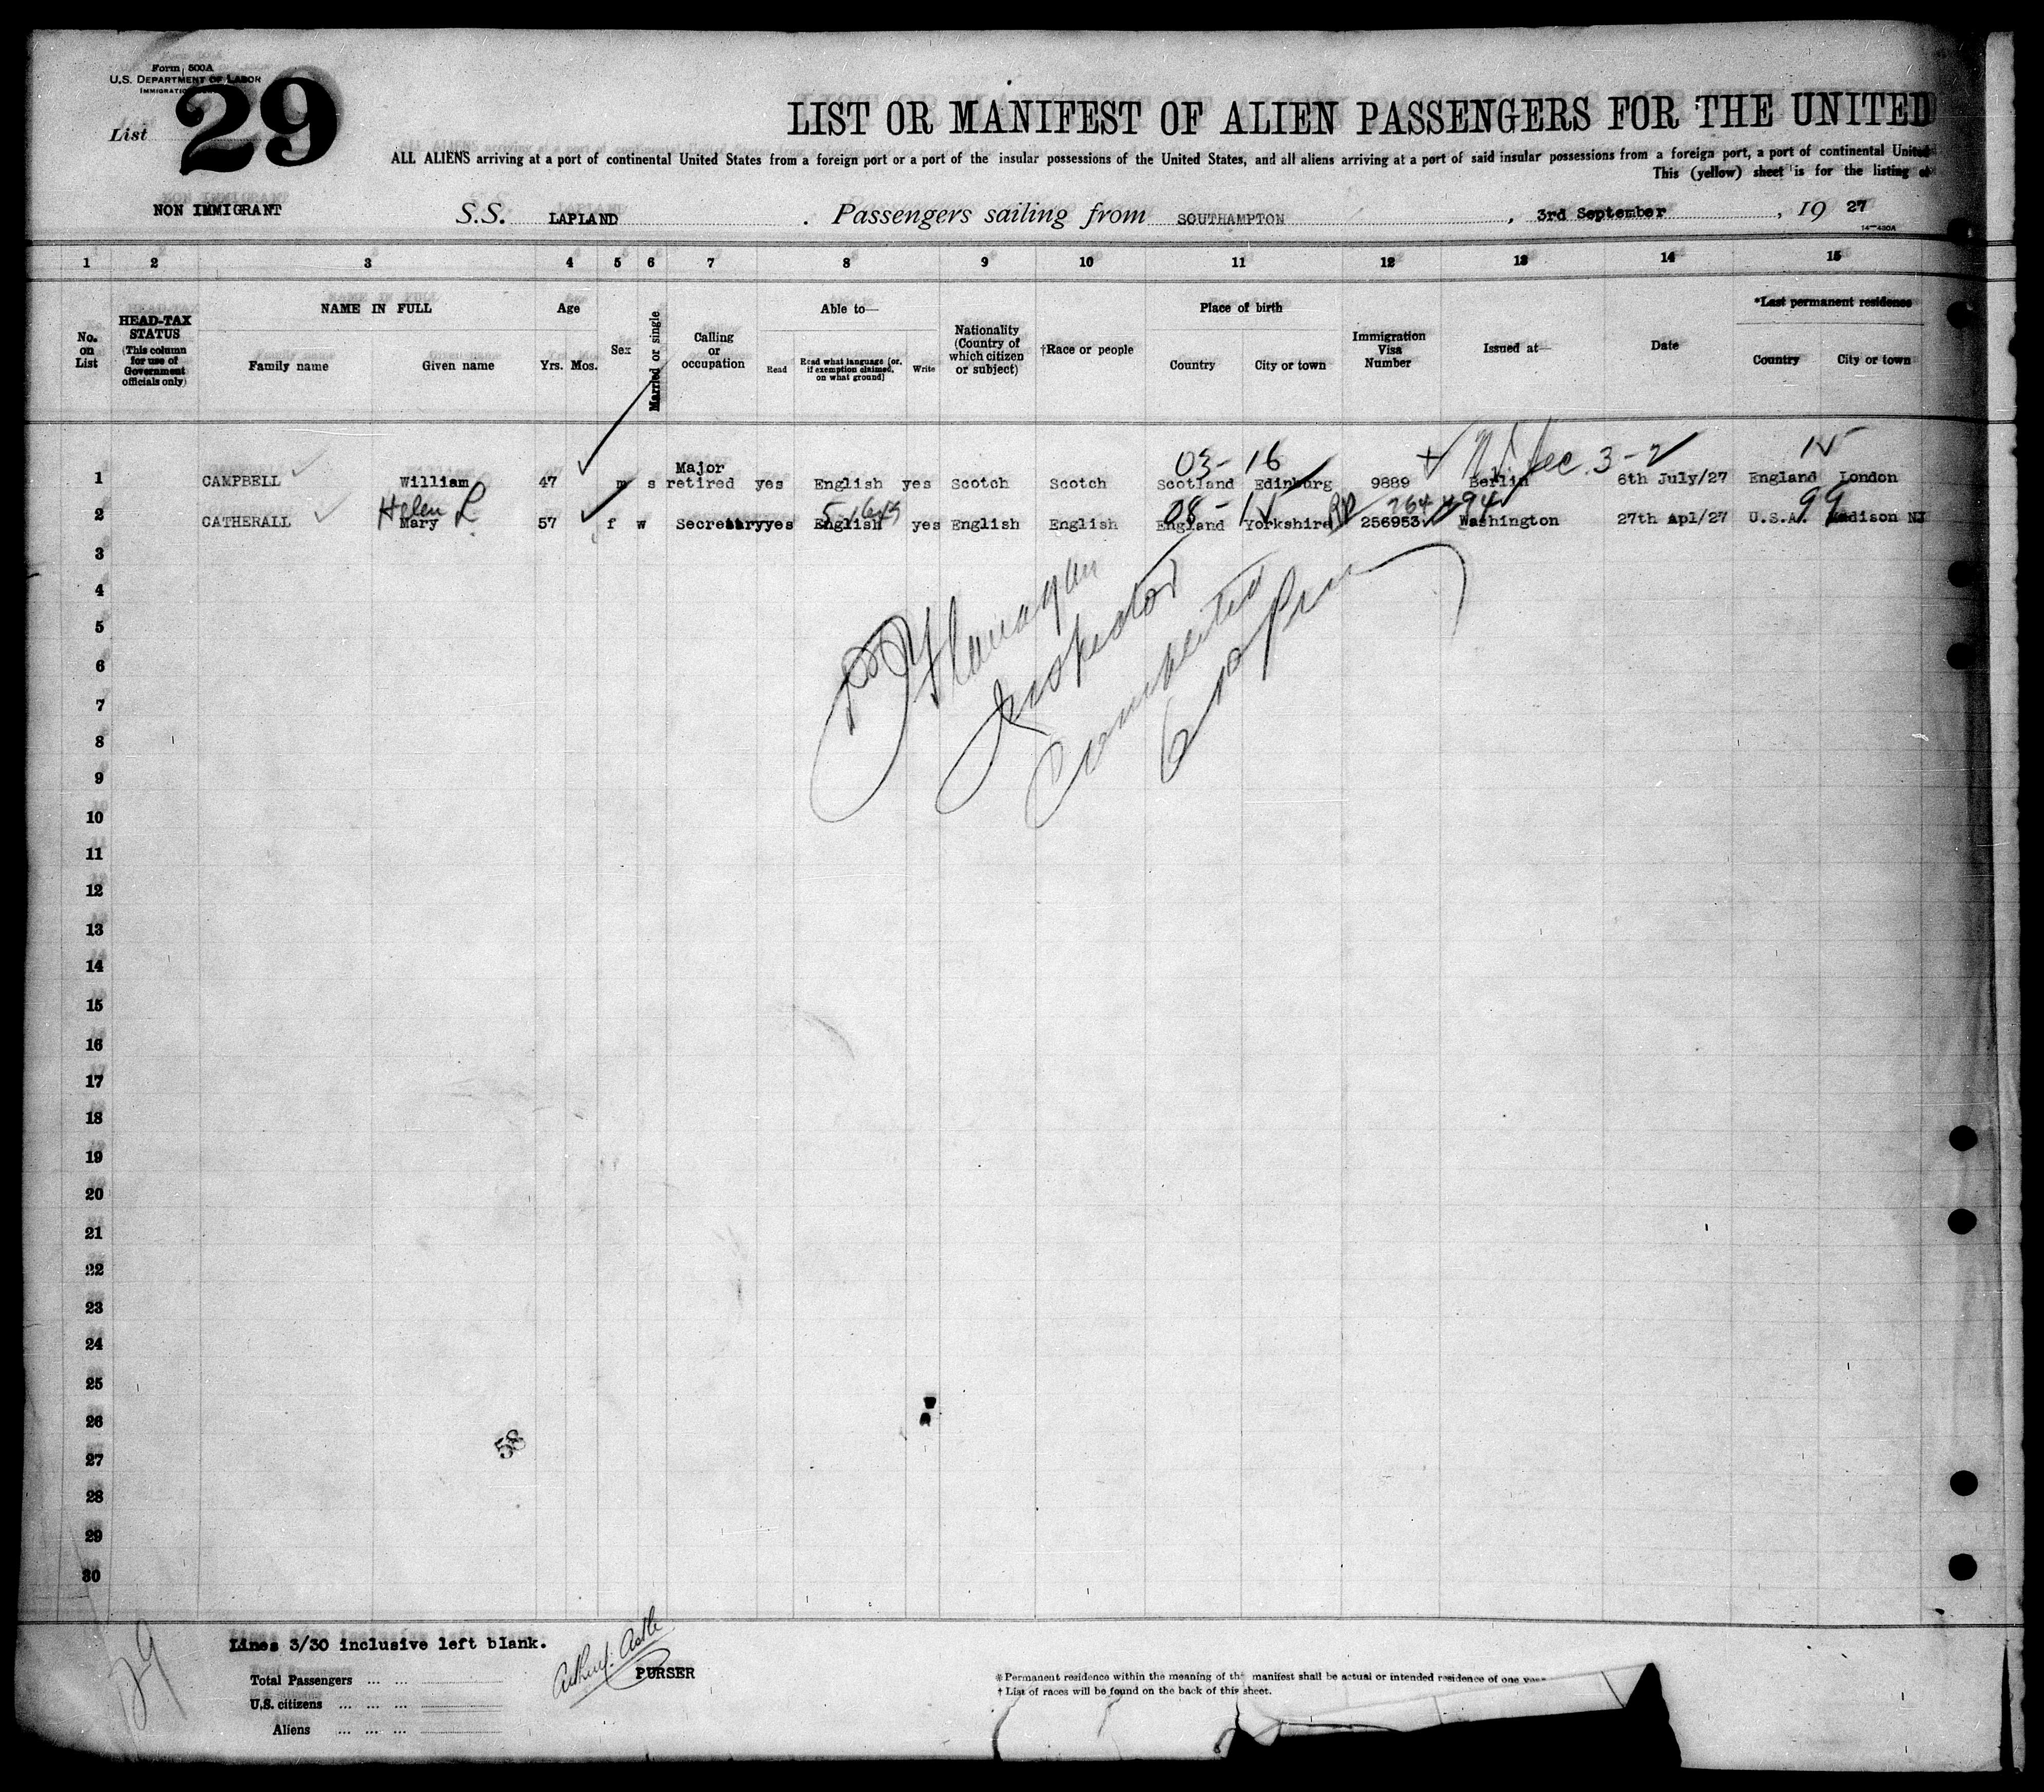 Form 500A
U.S. DEPARTMENT OF LABOR
List 29
LIST OR MANIFEST OF ALIEN PASSENGERS FOR THE UNITED
ALL ALIENS arriving at a port of continental United States from a foreign port or a port of the insular possessions of the United States, and all aliens arriving at a port of said insular possessions from a foreign port, a port of continental United
This (yellow) sheet is for the listing of
NON IMMIGRANT S.S. LAPLAND . Passengers sailing from SOUTHAMPTON , 3rd September , 19 27
14-430A
1 2 3 4 5 6 7 8 9 10 11 12 13 14 15
No. on List
HEAD-TAX STATUS (This column for use of Government officials only)
NAME IN FULL
Family name Given name
Age
Yrs. Mos.
Sex
Married or single
Calling or occupation
Able to—
Read Read what language [or, if exemption claimed, on what ground] Write
Nationality (Country of which citizen or subject)
†Race or people
Place of birth
Country City or town
Immigration Visa Number
Issued at—
Date
*Last permanent residence
Country City or town
03- 16 + 3-2 15
1 CAMPBELL William 47 m s Major retired yes English yes Scotch Scotch Scotland Edinburg 9889 Berlin 6th July/27 England London
Helen L 08- 99
2 CATHERALL Mary 57 f w Secretary yes English yes English English England Yorkshire 256953 Washington 27th Apl/27 U.S.A. Madison NJ
3
4
5
6
7
8
9
10
11
12
13
14
15
16
17
18
19
20
21
22
23
24
25
26
27
28
29
30
Flanagan
Inspector
58
29
Lines 3/30 inclusive left blank.
Total Passengers ... ...
U.S. citizens ... ... ...
Aliens ... ... ...
PURSER
* Permanent residence within the meaning of this manifest shall be actual or intended residence of one year
† List of races will be found on the back of this sheet.